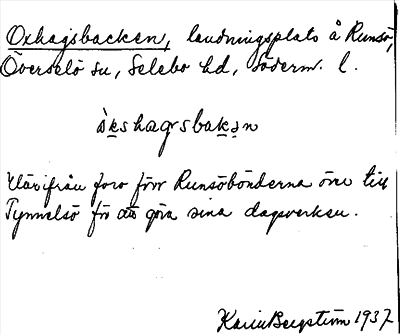 Oxhagsbacken, landningsplats å Runsö,
Överselö sn, Selebo hd, Söderm. l.
ὰkshagsbakən
Härifrån foro förr Runsöbönderna över till
Tynnelsö för att göra sina dagsverken.
Karin Bergström 1937